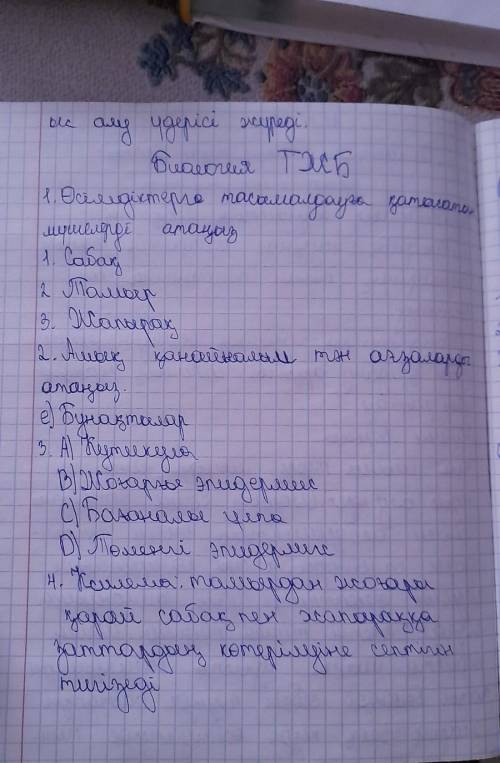 ыс алу үдерісі жүреді.
Биология ТЖБ
1. Өсімдіктерге тасымалдауға қатысаты
мүшелерді атаңыз
1. Сабақ
2 Тамыр
3. Жапырақ
2. Ашық қанайналым тән ағзаларды
атаңыз.
е) Бунақтылар
3. А) Кутикула
В) Жоғарғы эпидермис
С) Бағаналы ұлпа
D) Төменгі эпидермис
4. Ксилема: тамырдан жоғары
қарай сабақ пен жапараққа
заттардың көтерілуіне септігін
тигізеді